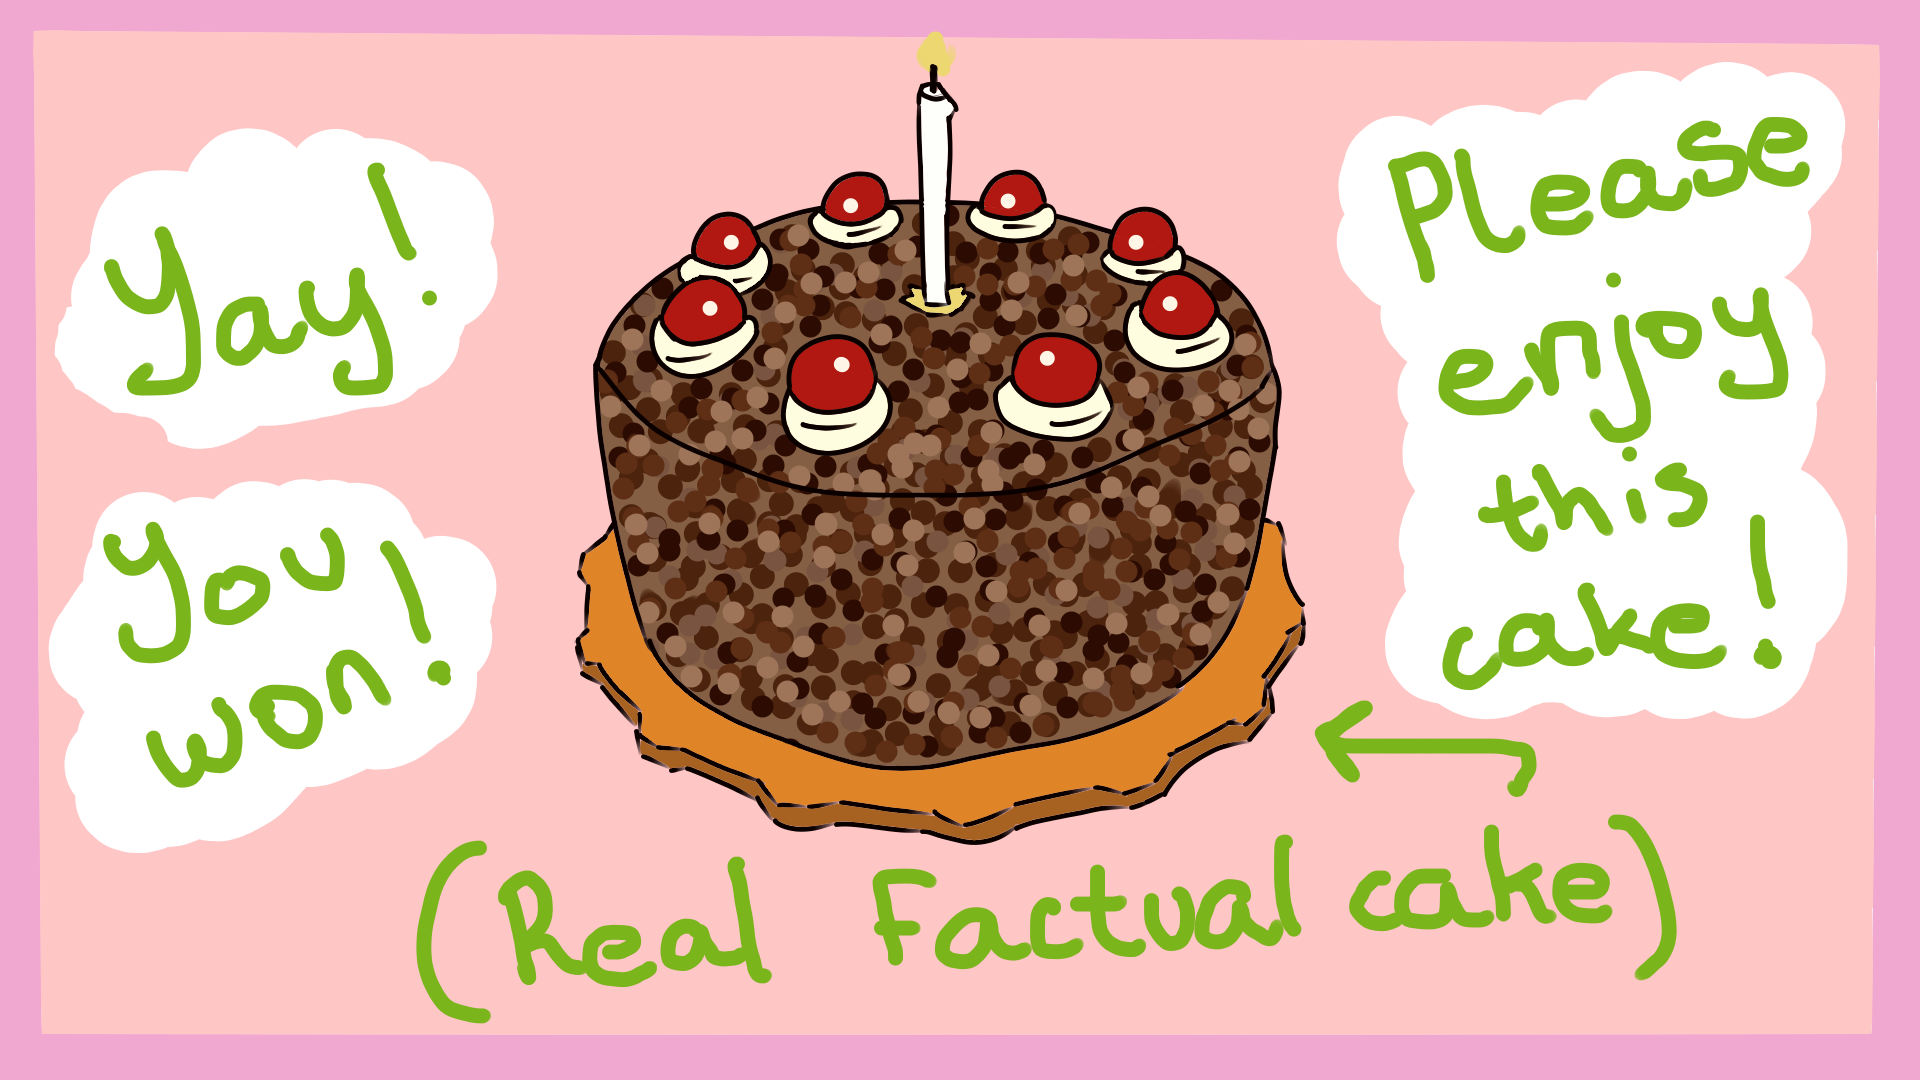 Yay!
You
won!
Please
enjoy
this
cake!
(Real Factual cake)